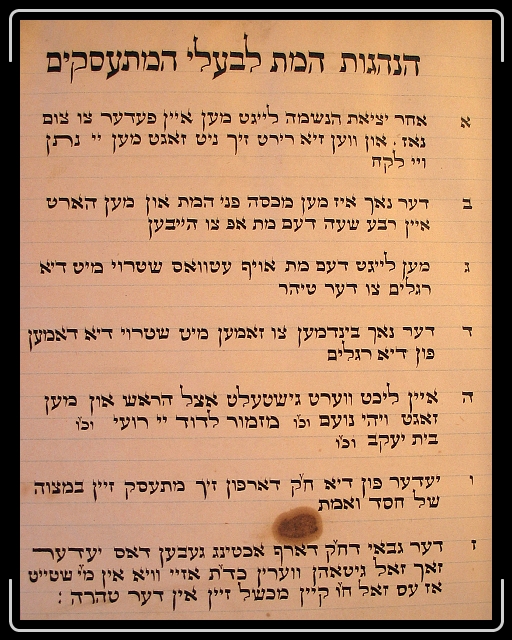 הנהגות המת לבעלי המתעסקים
א אחר יציאת הנשמה לייגט מען איין פעדער צו צום
נאז. און ווען זיא רירט זיך ניט זאגט מען יי נתן
ויי לקח
ב דער נאך איז מען מכסה פני המת און מען הארט
איין רבע שעה דעם מת אפ צו הייבען
ג מען לייגט דעם מת אויף עטוואס שטרוי מיט דיא
רגלים צו דער טיהר
ד דער נאך בינדמען צו זאמען מיט שטרוי דיא דאמען
פון דיא רגלים
ה איין ליכט ווערט גישטעלט אצל הראש און מען
זאגט ויהי נועם וכו מזמור לדוד יי רועי וכו
בית יעקב וכו
ו יעדער פון דיא ח"ק דארפון זיך מתעסק זיין במצוה
של חסד ואמת
ז דער גבאי דח"ק דארף אכטינג געבען דאס יעדער
זאך זאל גיטאהן ווערין כד"ת אזיי וויא אין מ"י שטייט
אז עס זאל ח"ו קיין מכשל זיין אין דער טהרה :